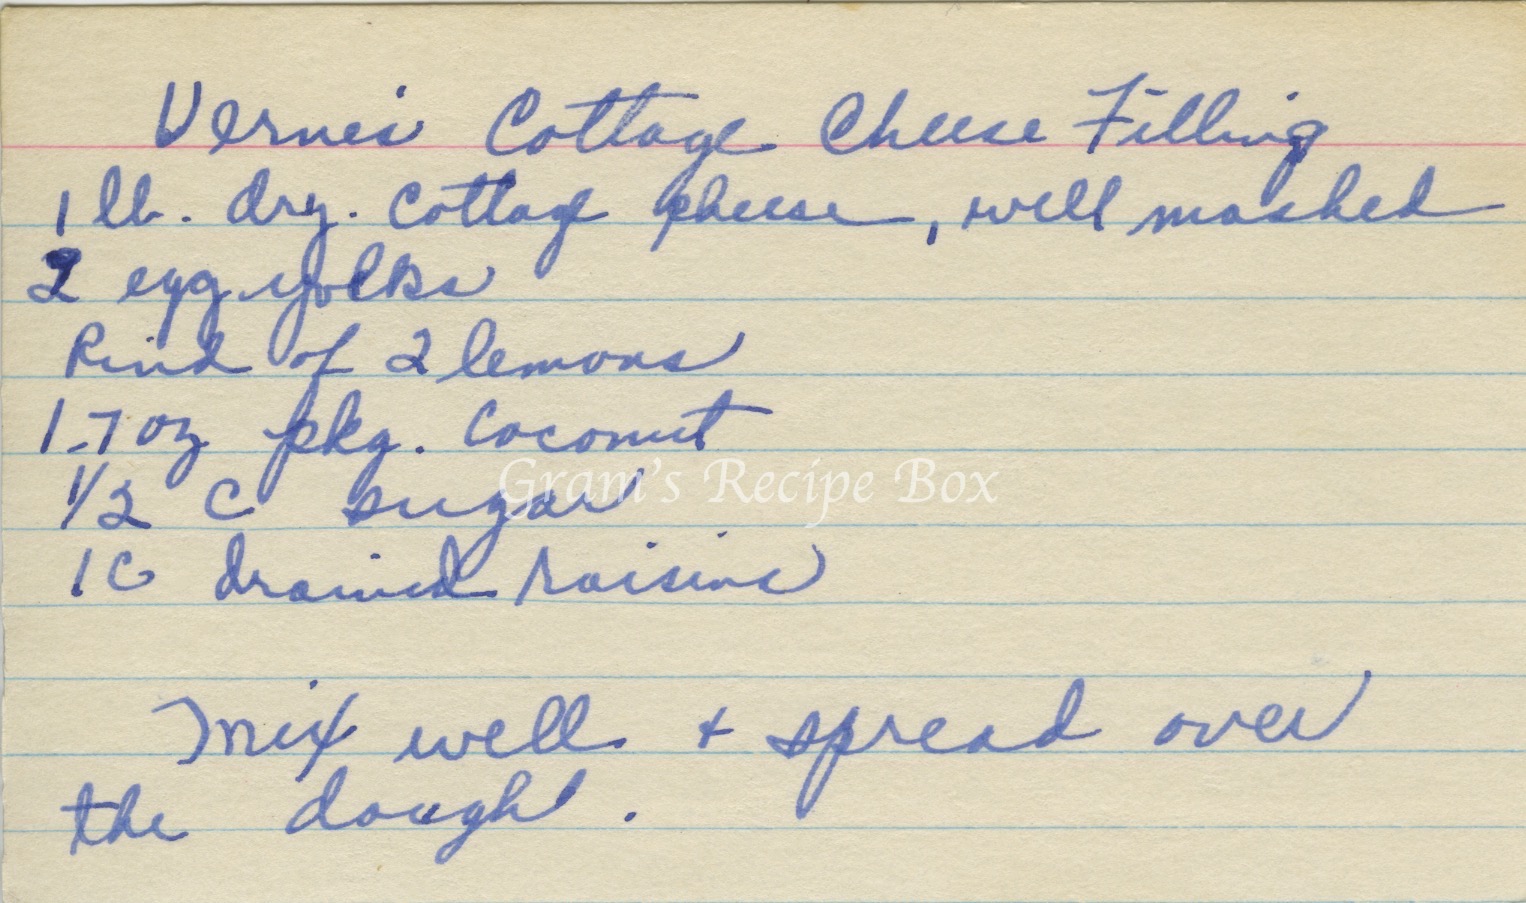 Verne's Cottage Cheese Filling
1 lb. dry. cottage cheese, well mashed
2 egg yolks
Rind of 2 lemons
1-7 oz pkg. Coconut
1/2 C sugar
Gram's Recipe Box
1 C drained raisins
Mix well + spread over
the dough.